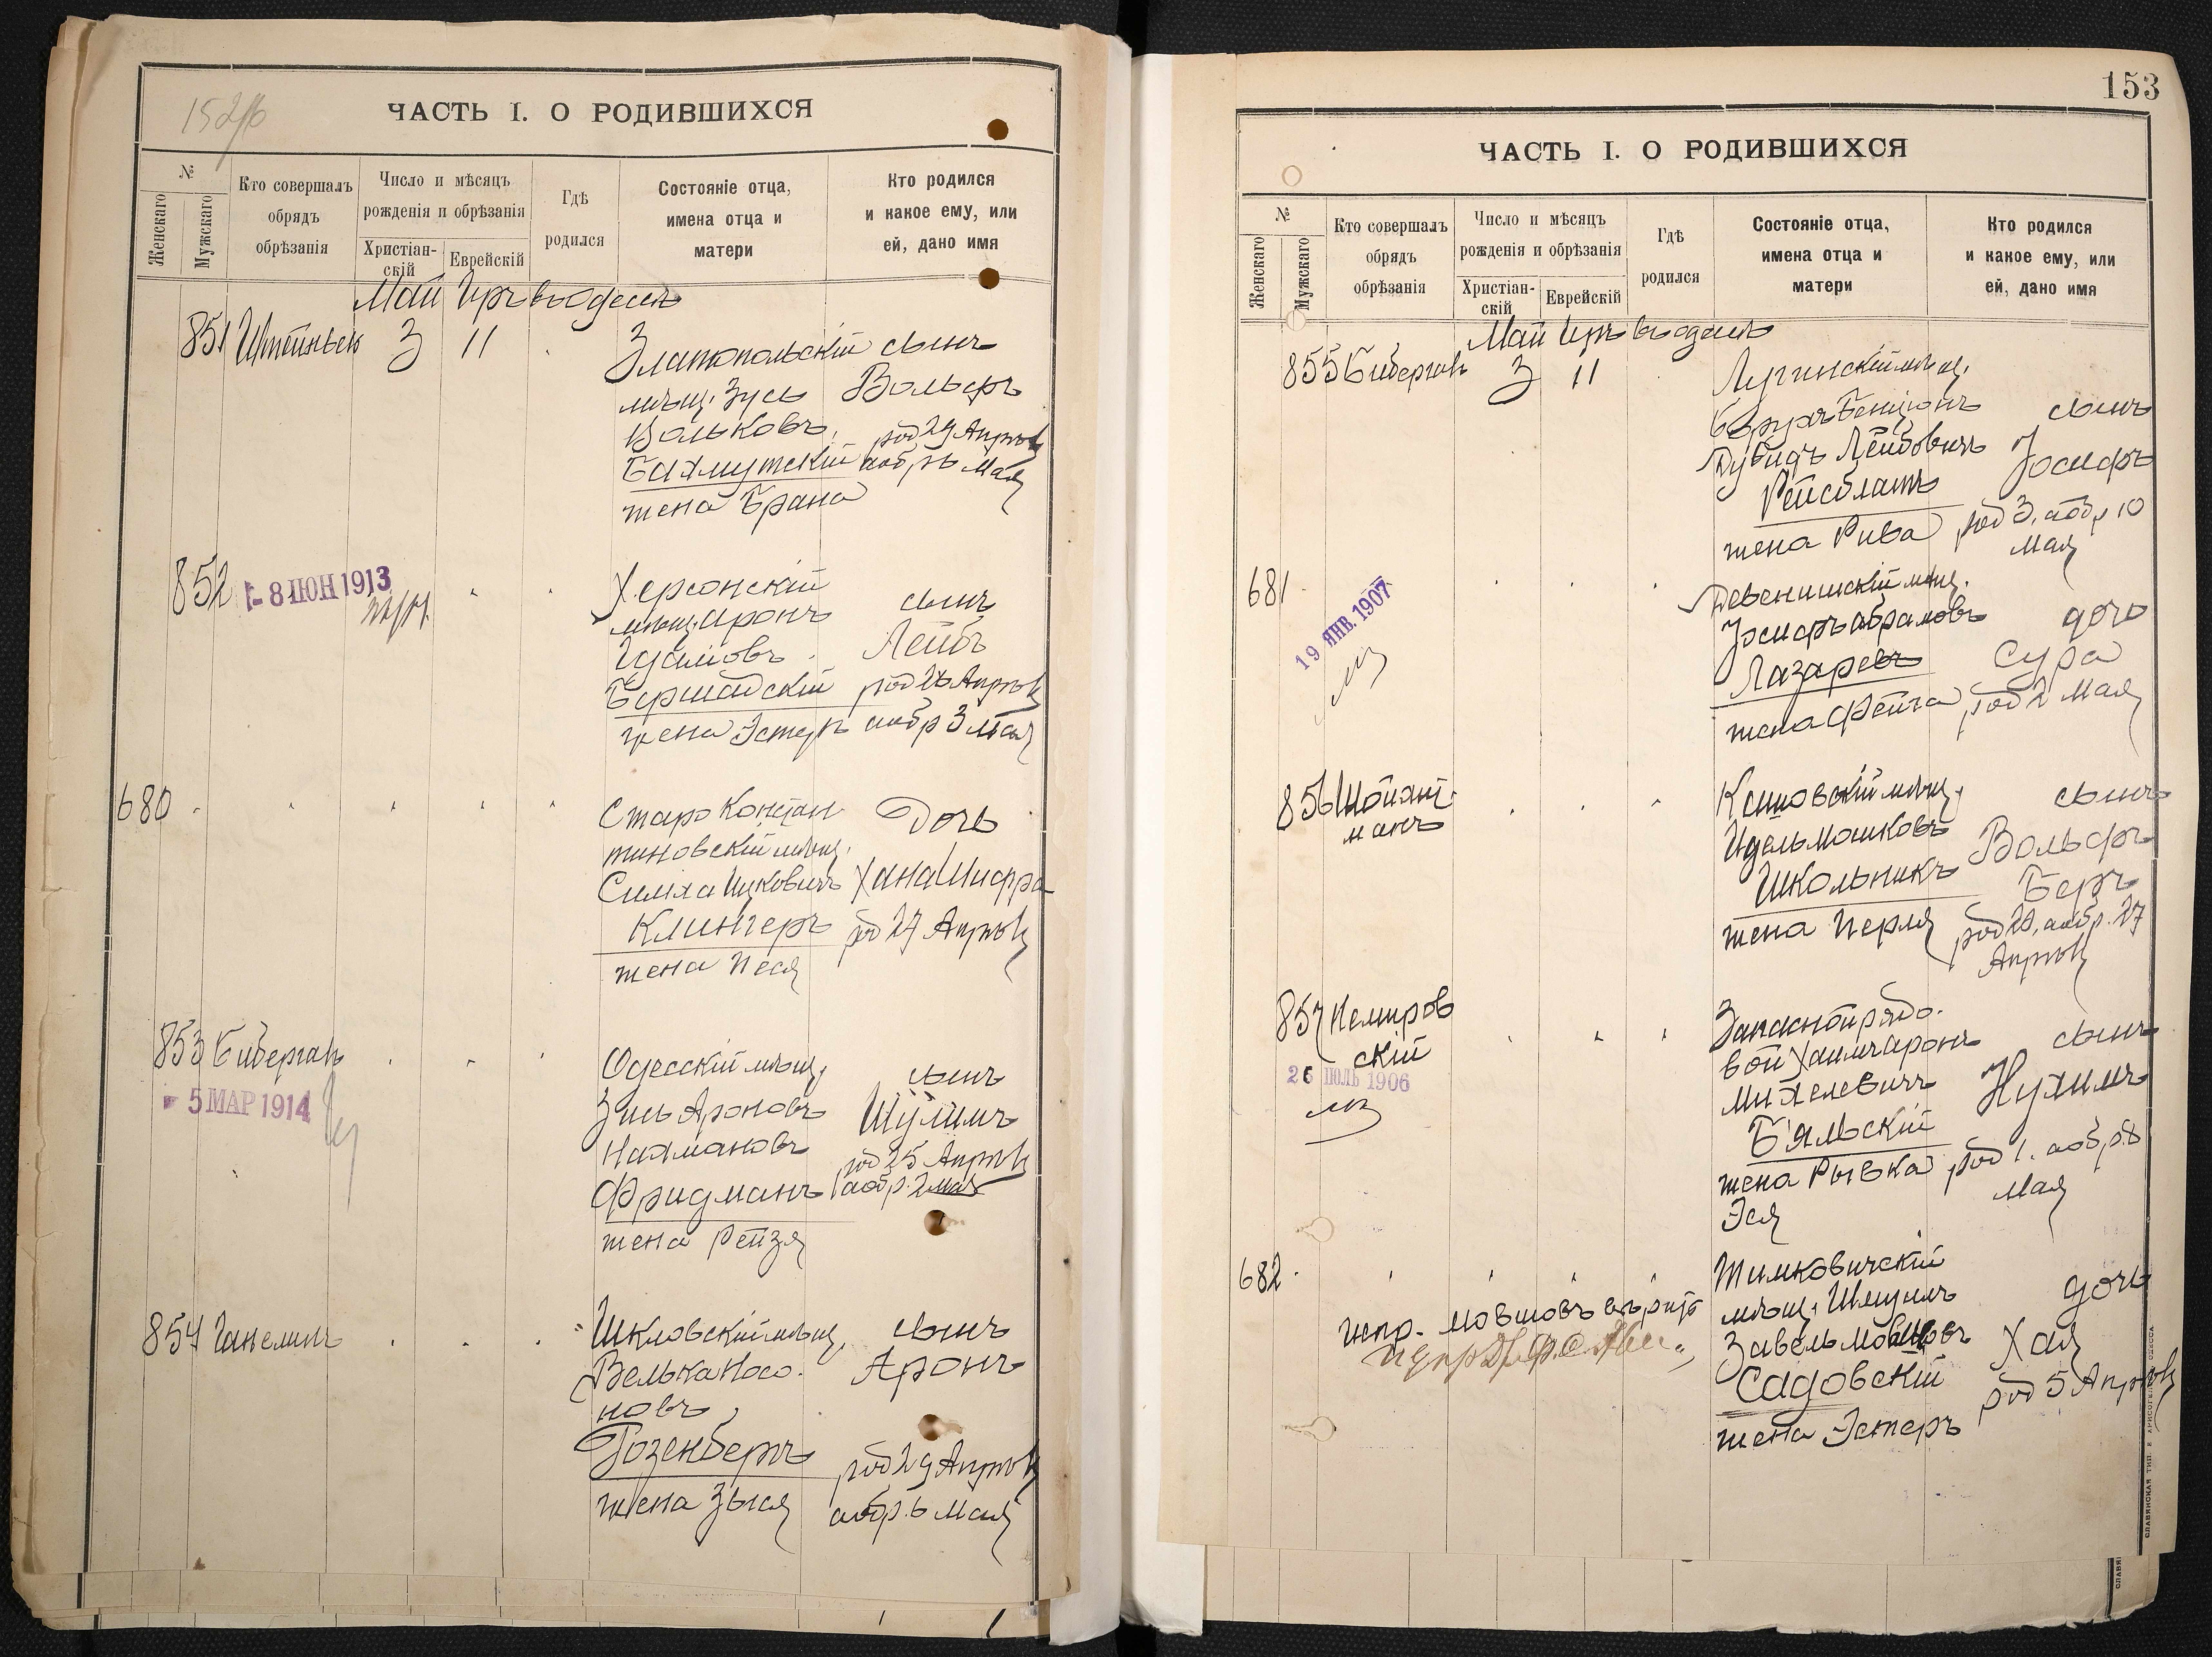 152/б
ЧАСТЬ I. О РОДИВШИХСЯ
№
Женскаго
Мужскаго
Кто совершалъ
обрядъ
обрѣзанія
Число и мѣсяцъ
рожденія и обрѣзанія
Христіан-
скій
Еврейскій
Гдѣ
родился
Состояніе отца,
имена отца и
матери
Кто родился
и какое ему, или
ей, дано имя
Май Іръ въ Одессѣ
851 3 11 Златопольскій сынъ
мѣщ. Зусь Вольфъ
Вольковъ род 29 Апрѣля
Бахмутскій обр 6 Мая
жена Брана
852 - 8 ІЮН 1913 Херсонскій
мѣщ. Аронъ сынъ
Лейбъ
Бершадскій род 26 Апрѣля
жена Эстеръ обр 3 Мая
680 Старо Констан
тиновскій мѣщ. Дочь
Симха Ицковичъ Хана Шифра
Клингеръ род 27 Апрѣля
жена Песя
853 Бибергалъ Одесскій мѣщ. сынъ
- 5 МАР 1914
Зись Ароновъ Шулимъ
Нахмановъ род 25 Апрѣля
Фридманъ обр. 2 мая
жена Рейзя
854 Ганелинъ Шкловскій мѣщ. сынъ
Велька Носо- Аронъ
новъ
Розенбергъ род 29 Апрѣля
жена Зыся обр. 6 Мая
153
ЧАСТЬ I. О РОДИВШИХСЯ
№
Женскаго
Мужскаго
Кто совершалъ
обрядъ
обрѣзанія
Число и мѣсяцъ
рожденія и обрѣзанія
Христіан-
скій
Еврейскій
Гдѣ
родился
Состояніе отца,
имена отца и
матери
Кто родился
и какое ему, или
ей, дано имя
Май Іръ въ Одессѣ
855 Бибергалъ 3 11 Лугинскій мѣщ.
Борухъ Бенціонъ сынъ
Дувидъ Лейбовичъ Іосифъ
Рейсблатъ
жена Рива род 3, обр 10
Мая
681 Девенишскій мѣщ.
19 ЯНВ. 1907
Іосифъ Абрамовъ дочь
Лазаревъ Сура
жена Фейга род 2 Мая
856 Шойхет-
манъ
мѣщ. сынъ
Идель Мошковъ Вольфъ
Школьникъ Беръ
жена Перля род 20, обр. 27
Апрѣля
857 Немиров
скій
26 ІЮЛЬ 1906
Запасной рядо-
вой Хаимъ Аронъ сынъ
Михелевичъ Нухимъ
Бяльскій
жена Рывка род 1. обр. 8
Эся Мая
682 Тимковичскій
мѣщ. Шмуилъ дочь
испр. Мовшовъ вѣрить
Завель Мовшовъ Хая
Садовскій род 5 Апрѣля
жена Эстеръ
СЛАВЯНСКАЯ ТИП. Е. ХРИСОГЕЛОСЪ ОДЕССА